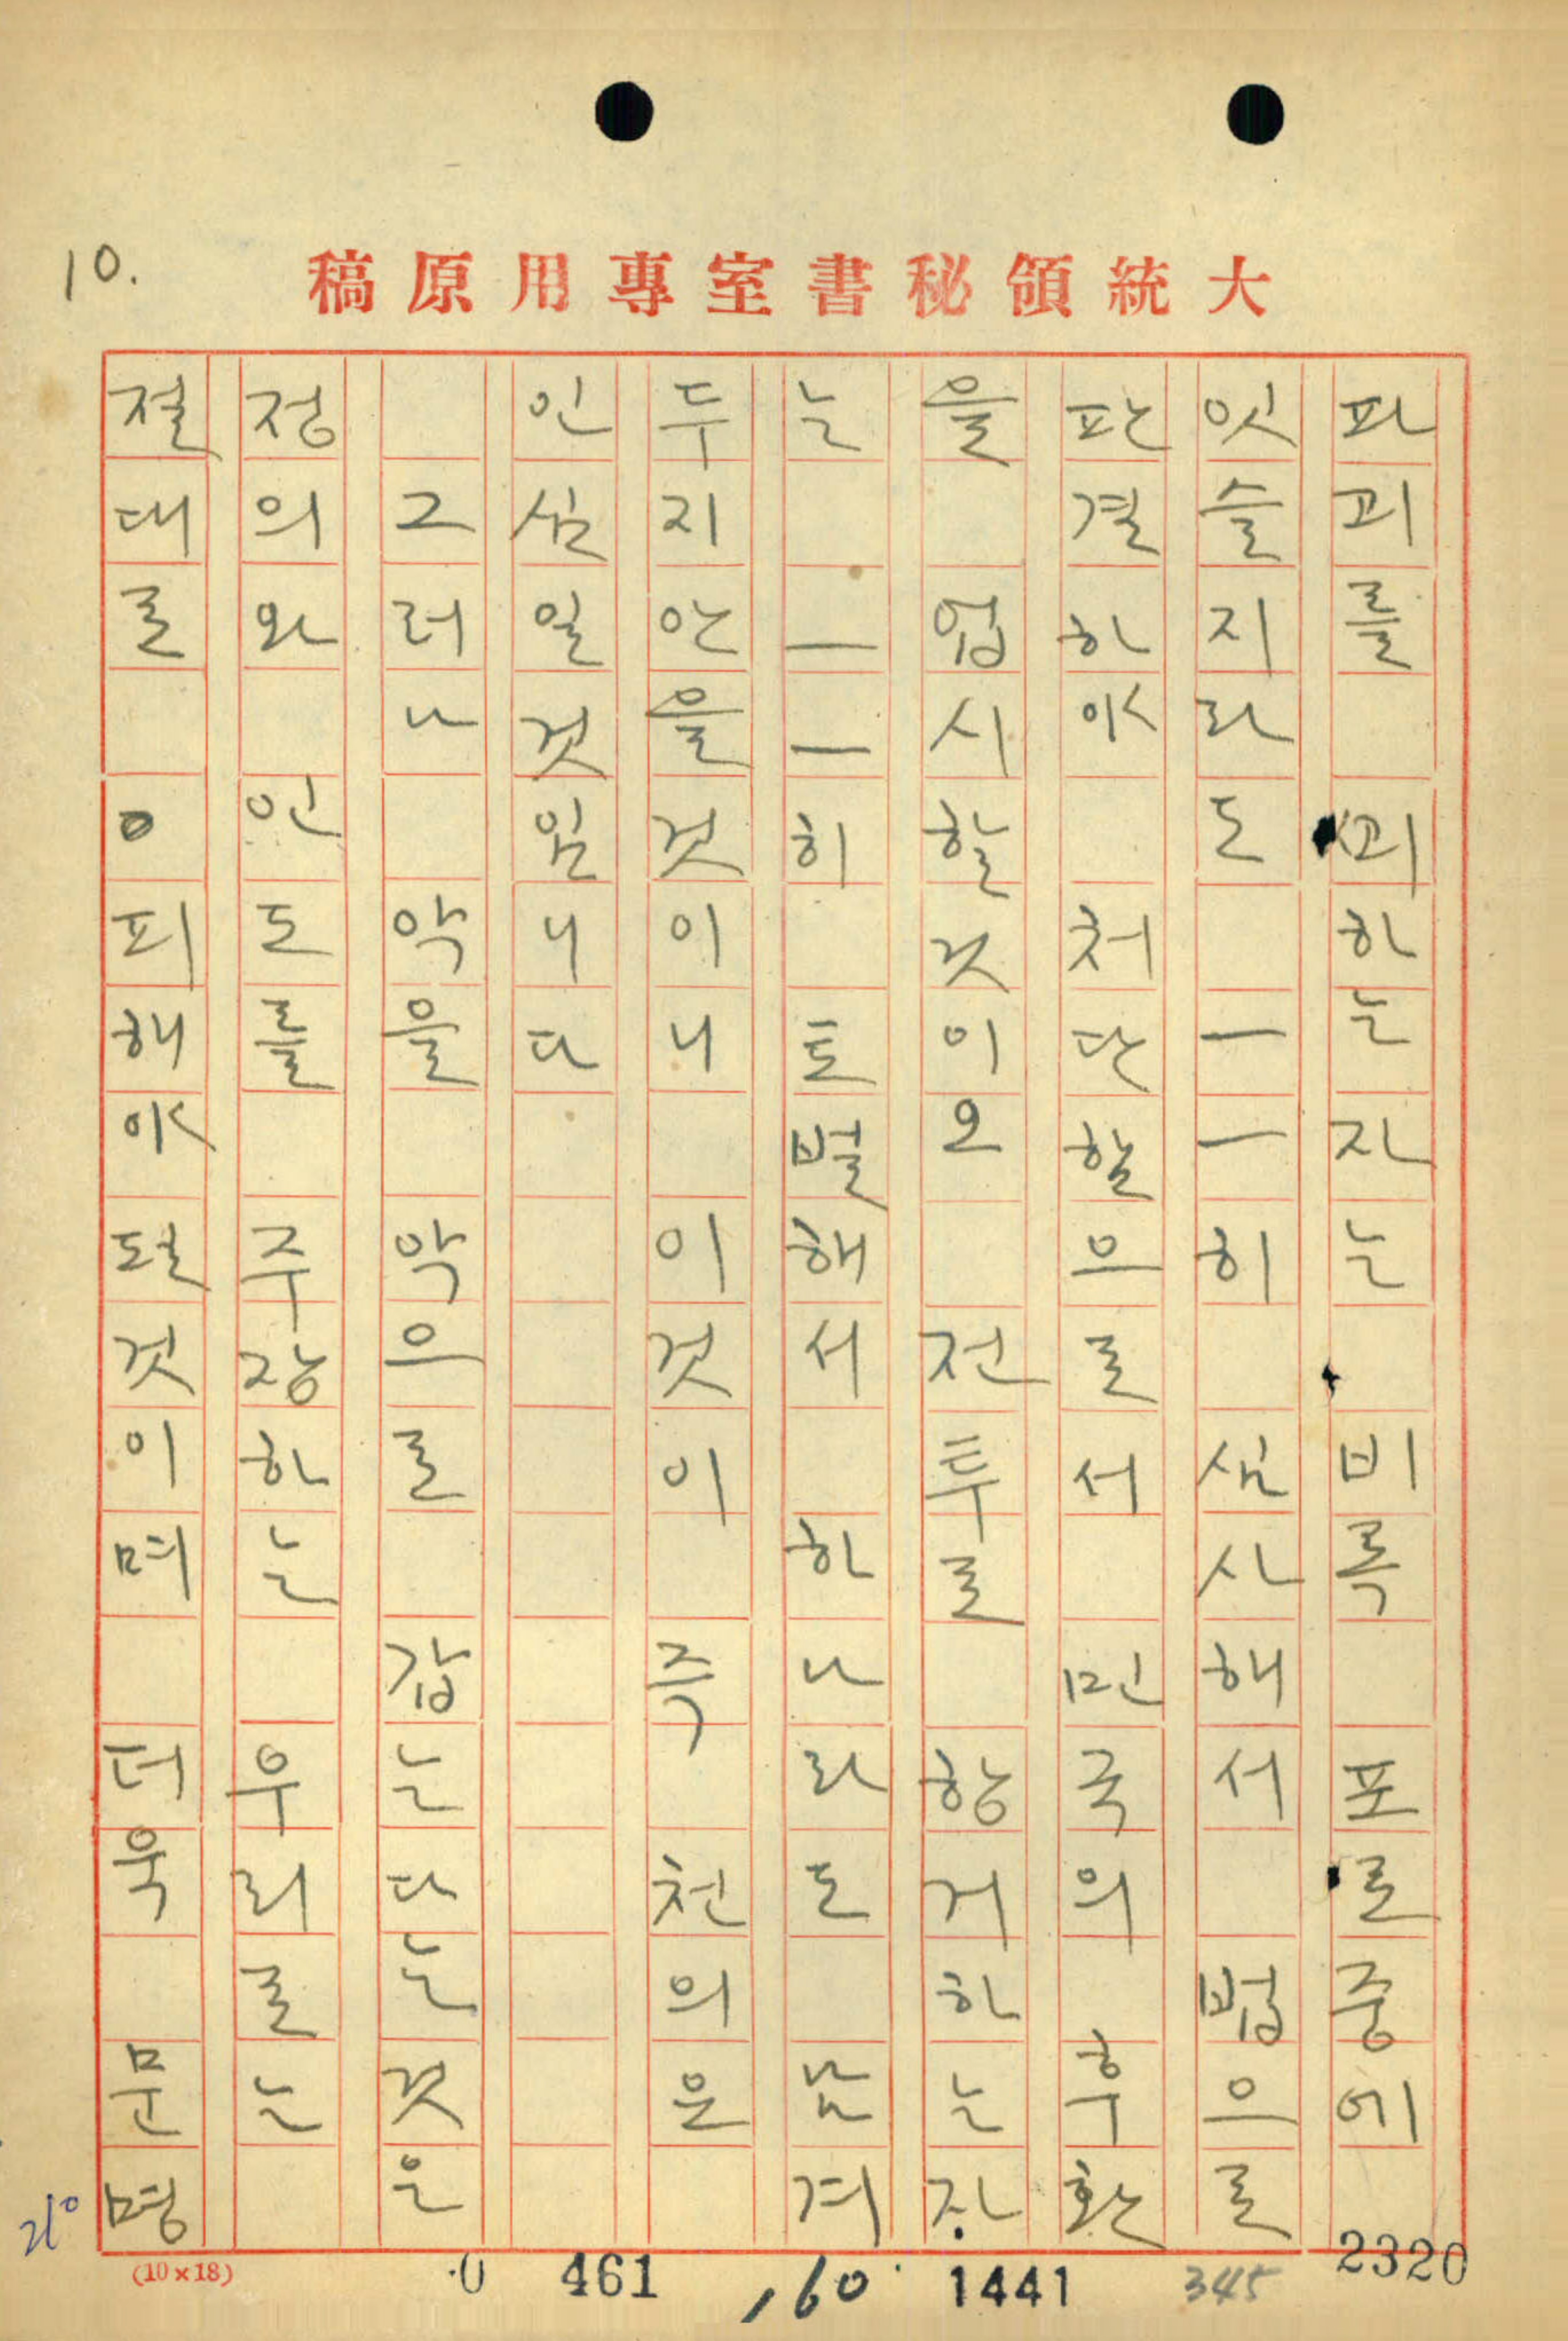 10.
大統領秘書室專用原稿
파괴를 ᄭᅬ하는자는 비록 포로중에
잇슬지라도 一一히 심사해서 법으로
판결하야 처단할으로서 민국의 후환
을 업시할것이오 전투로 항거하는자
는 一一히 토벌해서 하나라도 남겨
두지안을것이니 이것이 즉 천의은
인심일것임니다
그러나 악을 악으로 갑는다는것은
정의와 인도를 주장하는 우리로는
절대로 ㅇ피해야 될것이며 더욱 문명
(10×18)
0 461 160 1441 345 2320